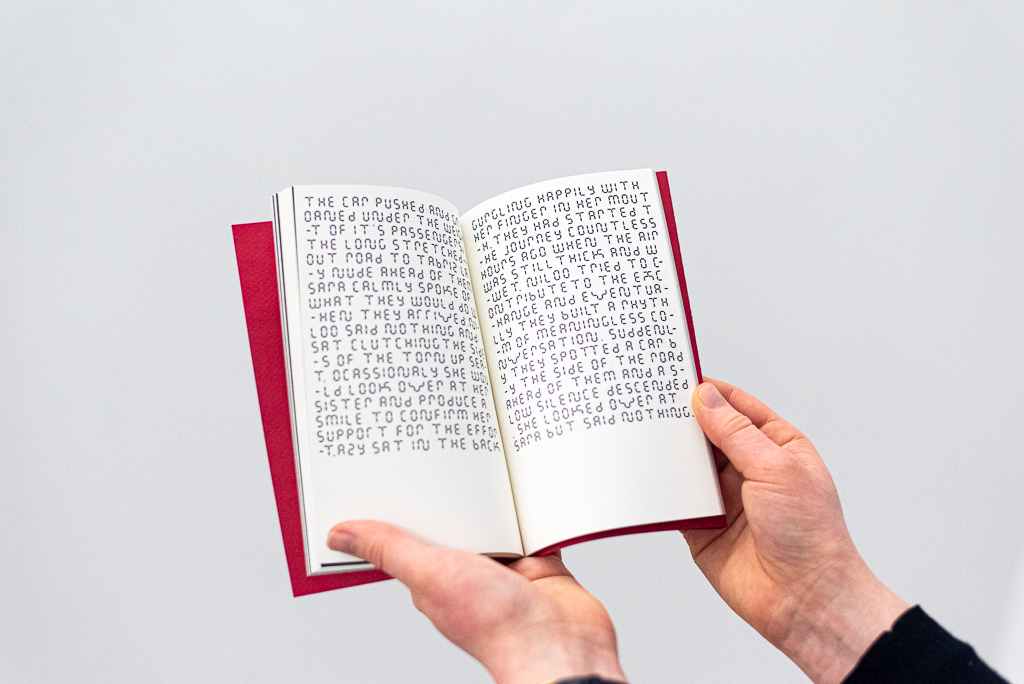 THE CAR PUSHED AND GR
OANED UNDER THE WEI
-T OF IT'S PASSENGERS
THE LONG STRETCHED
OUT ROAD TO TABRIZ
-Y NUDE AHEAD OF THEM
SARA CALMLY SPOKE OF
WHAT THEY WOULD DO W
-HEN THEY ARRIVED NI
LOO SAID NOTHING AND
SAT CLUTCHING THE SIDE
-S OF THE TORN UP SEA
T. OCASSIONALY SHE WOU
-LD LOOK OVER AT HER
SISTER AND PRODUCE A
SMILE TO CONFIRM HER
SUPPORT FOR THE EFFOR
-T. AZY SAT IN THE BACK
GURGLING HAPPILY WITH
HER FINGER IN HER MOUT
-H. THEY HAD STARTED T
-HE JOURNEY COUNTLESS
HOURS AGO WHEN THE AIR
WAS STILL THICK AND W-
-WET. NILOO TRIED TO C-
ONTRIBUTE TO THE EXC
-HANGE AND EVENTUR-
LLY THEY BUILT A RHYTH
-M OF MEANINGLESS CO-
NVERSATION. SUDDENL-
-Y THEY SPOTTED A CAR B
-Y THE SIDE OF THE ROAD
AHEAD OF THEM AND A S-
LOW SILENCE DESCENDED
. SHE LOOKED OVER AT
SARA BUT SAID NOTHING.